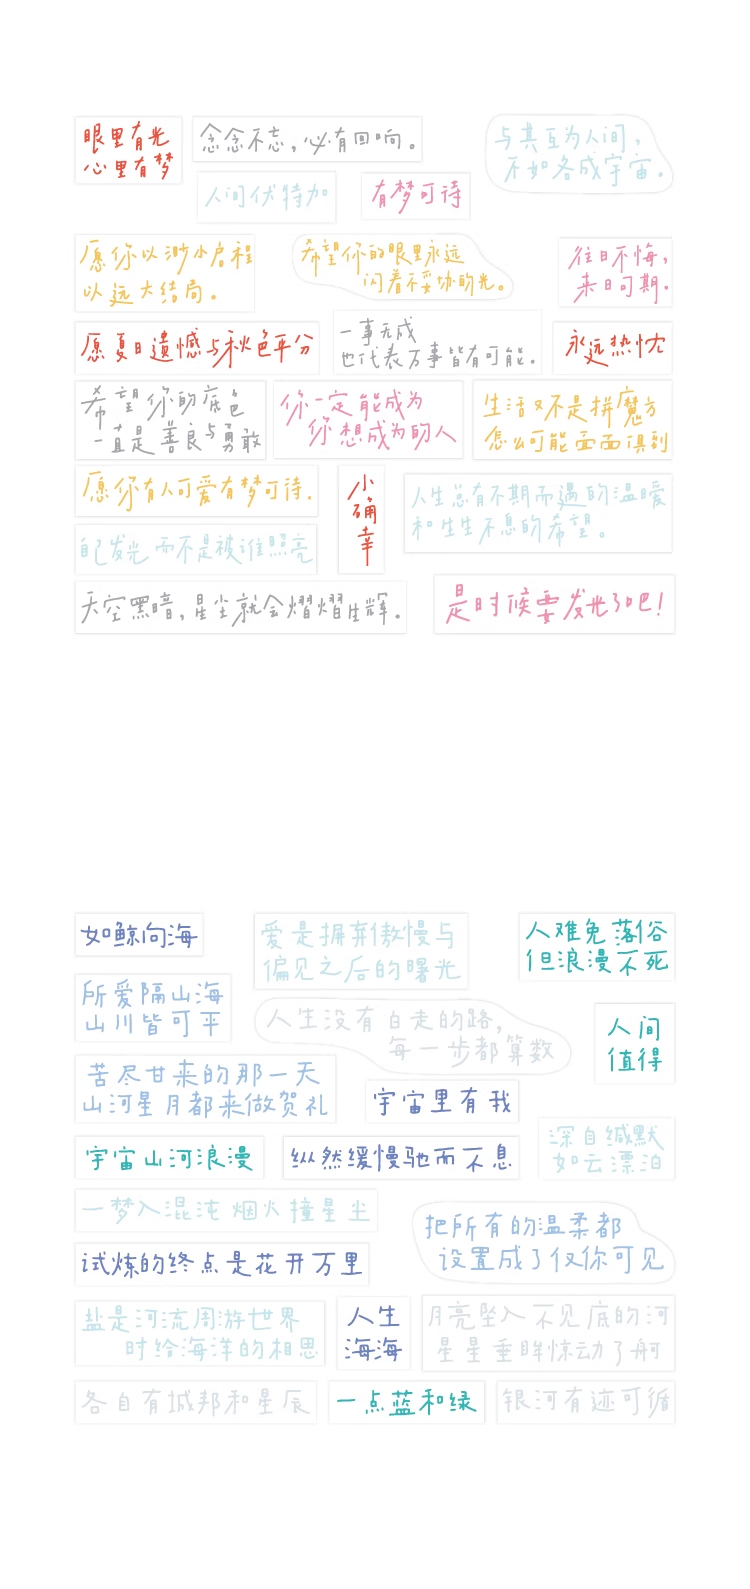 眼里有光
心里有梦
念念不忘，必有回响。
与其互为人间，
不如各成宇宙。
人间伏特加
有梦可待
愿你以渺小启程
以远大结局。
希望你的眼里永远
闪着不妥协的光。
往日不悔，
来日可期.
愿夏日遗憾与秋色平分
一事无成
也代表万事皆有可能.
永远热忱
希望你的底色
一直是善良与勇敢
你一定能成为
你想成为的人
生活又不是拼魔方
怎么可能面面俱到
愿你有人可爱有梦可待.
小确幸
人生总有不期而遇的温暖
和生生不息的希望。
自己发光而不是被谁照亮
天空黑暗，星尘就会熠熠生辉.
是时候要发光了吧！
如鲸向海
爱是摒弃傲慢与
偏见之后的曙光
人难免落俗
但浪漫不死
所爱隔山海
山川皆可平
人生没有白走的路，
每一步都算数
人间
值得
苦尽甘来的那一天
山河星月都来做贺礼
宇宙里有我
宇宙山河浪漫
纵然缓慢驰而不息
深自缄默
如云漂泊
一梦入混沌 烟火撞星尘
把所有的温柔都
设置成了仅你可见
试炼的终点是花开万里
盐是河流周游世界
时给海洋的相思
人生
海海
月亮坠入不见底的河
星星垂眸惊动了舸
各自有城邦和星辰
一点蓝和绿
银河有迹可循